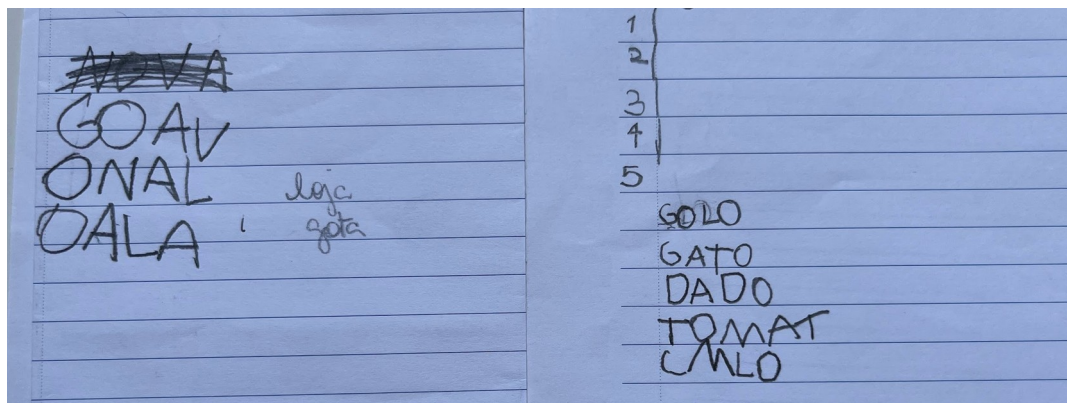 NOVA
GOAV
ONAL
OALA
loja
gota
1
2
3
4
5
GOLO
GATO
DADO
TOMAT